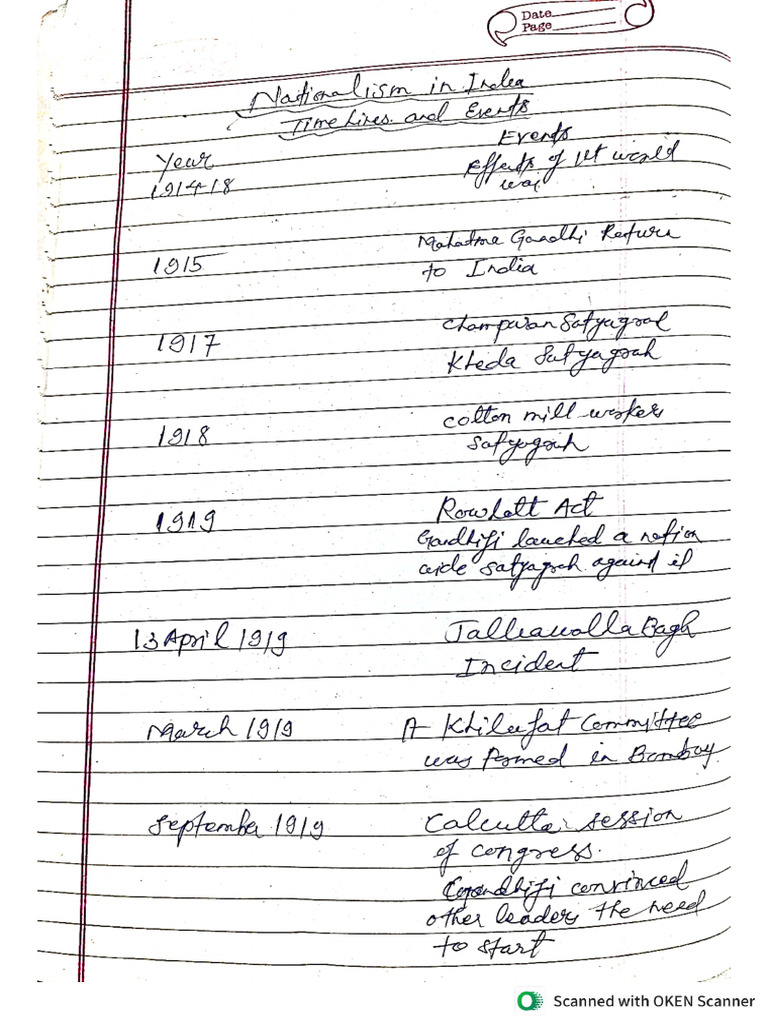 Date
Page
Nationalism in India
Time Lines and Events
Year
Events
1914-18
Effects of 1st world
war
1915
Mahatma Gandhi Return
to India
1917
Champaran Satyagrah
Kheda Satyagrah
1918
cotton mill workers
Satyagrah
1919
Rowlatt Act
Gandhiji lauched a nation
wide satyagrah against it
13 April 1919
Jallianwalla Bagh
Incident
March 1919
A Khilafat Committee
was formed in Bombay
September 1919
Calcutta session
of congress.
Gandhiji convinced
other leaders the need
to start
Scanned with OKEN Scanner